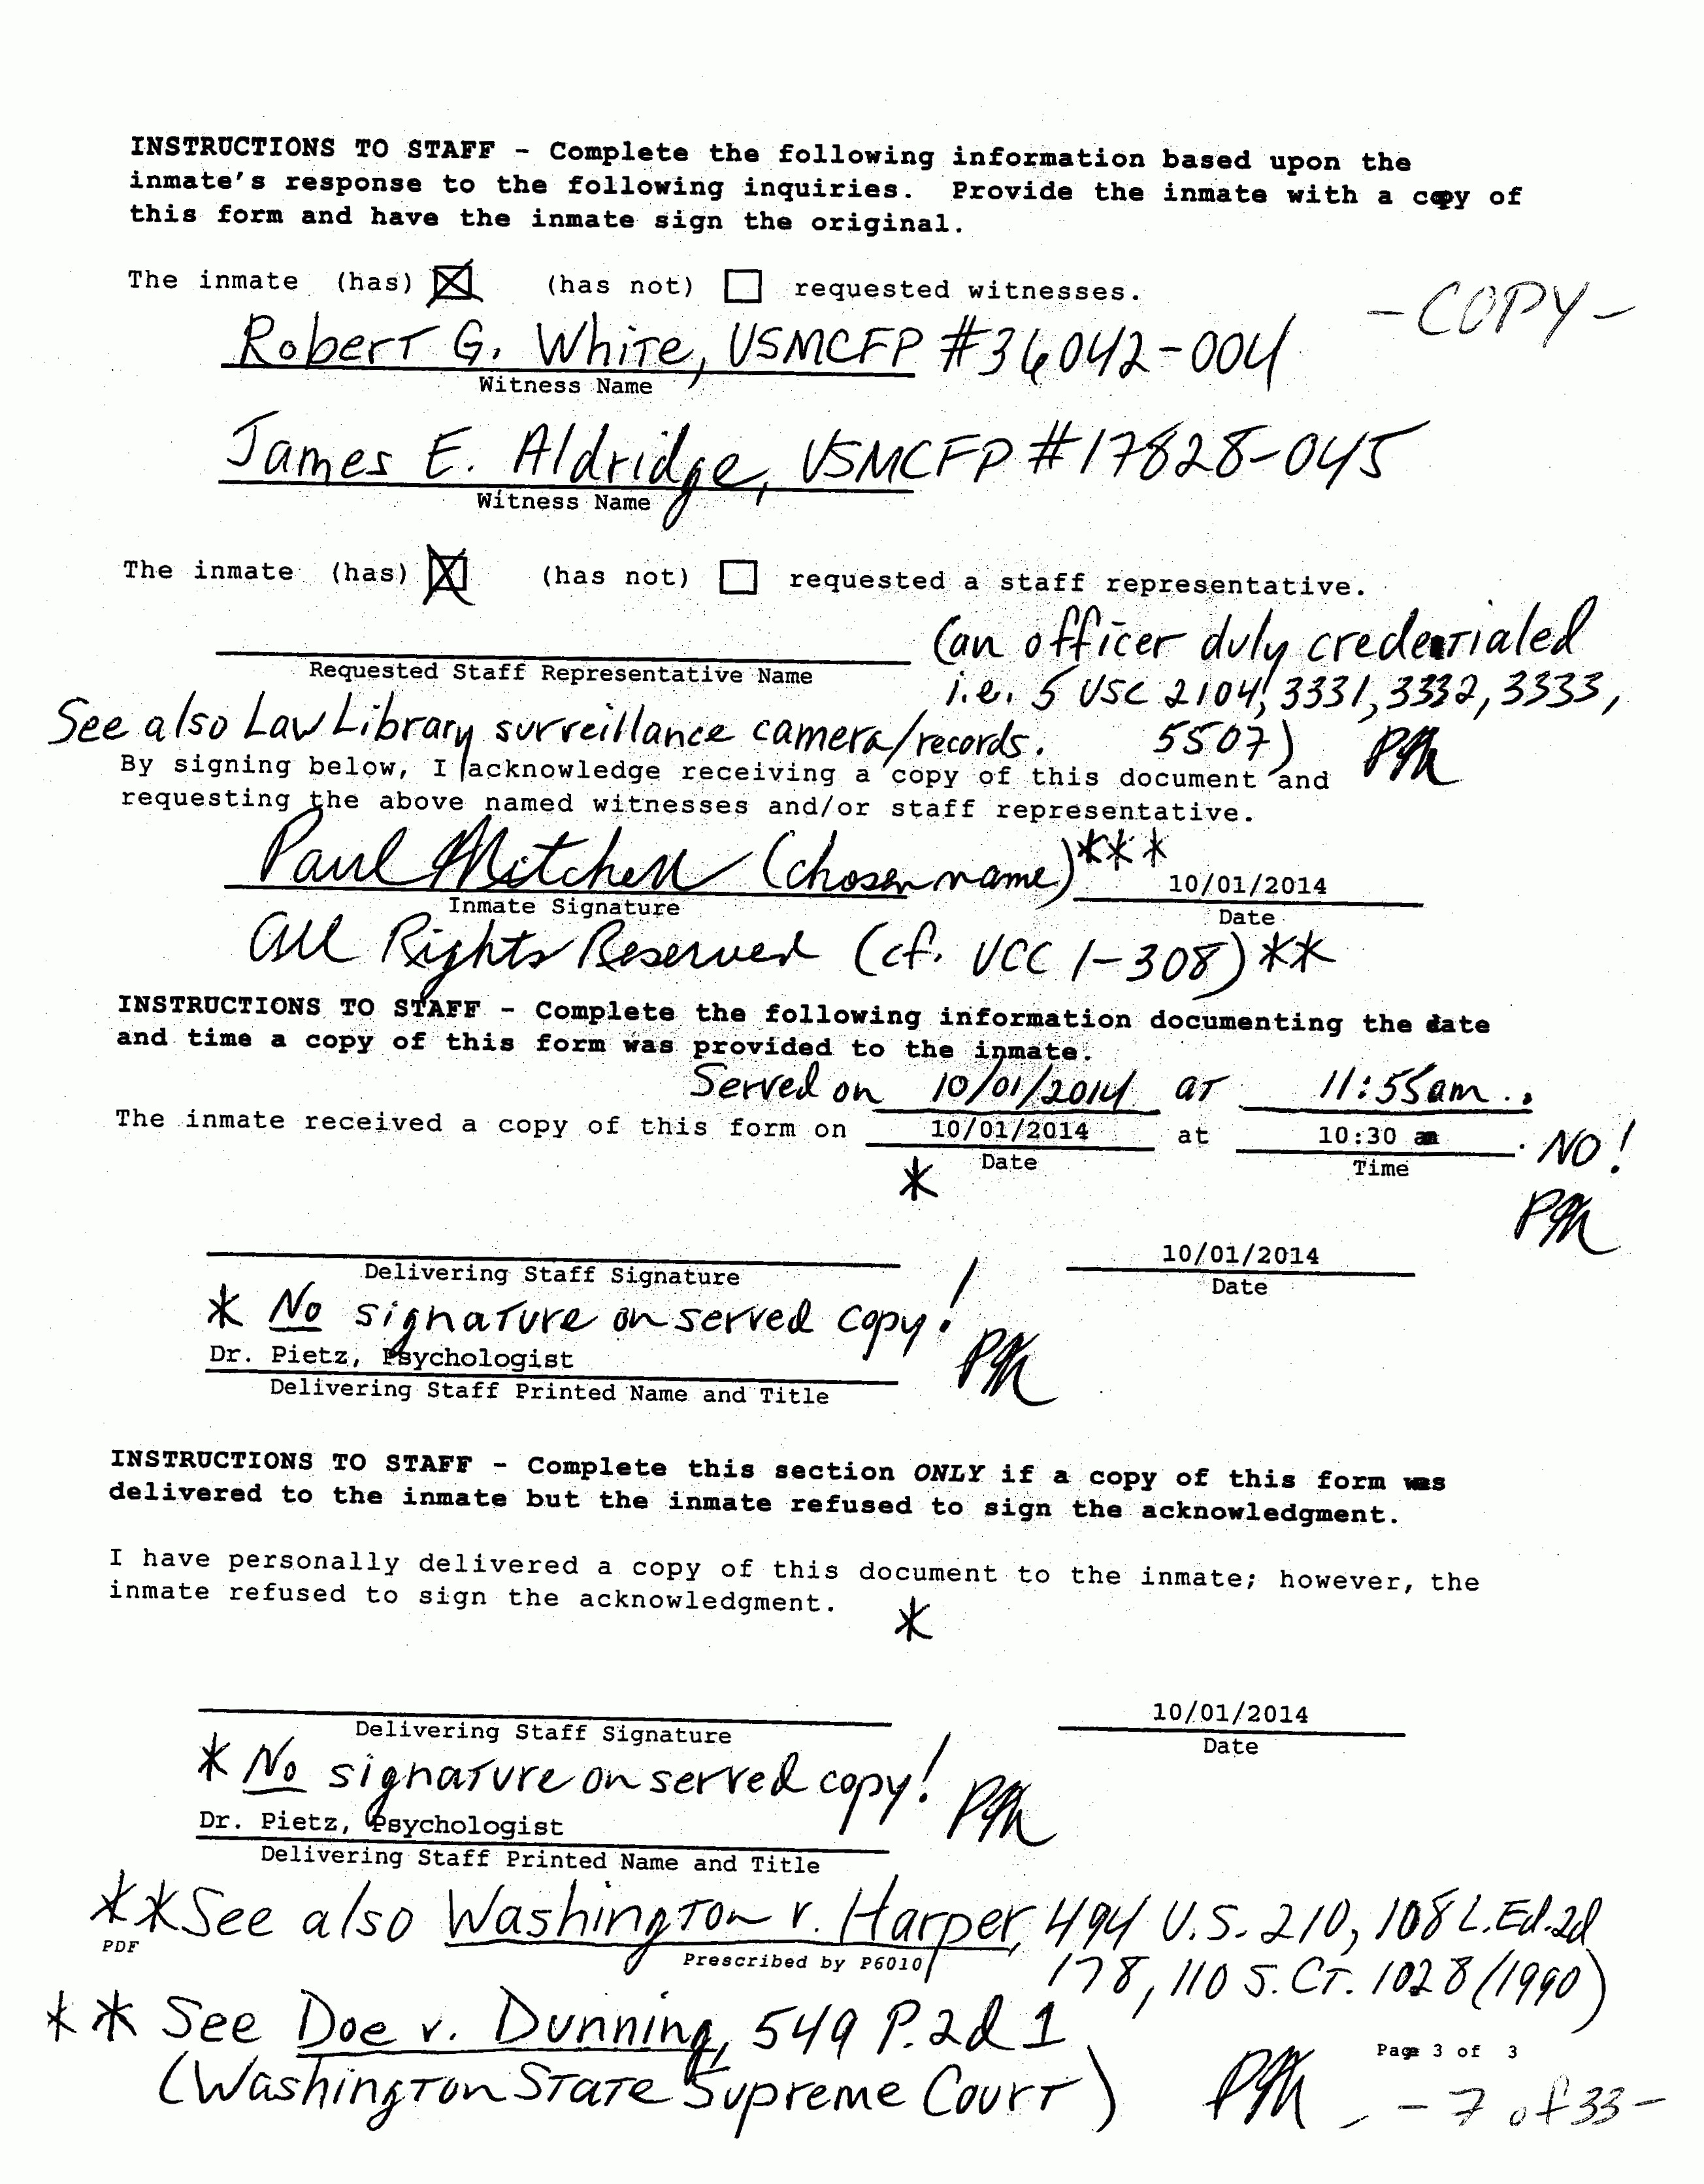 INSTRUCTIONS TO STAFF - Complete the following information based upon the
inmate's response to the following inquiries. Provide the inmate with a copy of
this form and have the inmate sign the original.
The inmate (has) ☒ (has not) ☐ requested witnesses.
-COPY-
Robert G. White, USMCFP #36042-004
Witness Name
James E. Aldridge, USMCFP #17828-045
Witness Name
The inmate (has) ☒ (has not) ☐ requested a staff representative.
(an officer duly credentialed
Requested Staff Representative Name
i.e. 5 USC 2104, 3331, 3332, 3333,
See also Law Library surveillance camera/records. 5507) PM
By signing below, I acknowledge receiving a copy of this document and
requesting the above named witnesses and/or staff representative.
Paul Mitchell (chosen name)*** 10/01/2014
Inmate Signature Date
All Rights Reserved (cf. UCC 1-308)**
INSTRUCTIONS TO STAFF - Complete the following information documenting the date
and time a copy of this form was provided to the inmate.
Served on 10/01/2014 at 11:55am.
The inmate received a copy of this form on 10/01/2014 at 10:30 am. NO!
* Date Time
PM
10/01/2014
Delivering Staff Signature Date
* No signature on served copy! PM
Dr. Pietz, Psychologist
Delivering Staff Printed Name and Title
INSTRUCTIONS TO STAFF - Complete this section ONLY if a copy of this form was
delivered to the inmate but the inmate refused to sign the acknowledgment.
I have personally delivered a copy of this document to the inmate; however, the
inmate refused to sign the acknowledgment. *
10/01/2014
Delivering Staff Signature Date
* No signature on served copy! PM
Dr. Pietz, Psychologist
Delivering Staff Printed Name and Title
**See also Washington v. Harper, 494 U.S. 210, 108 L.Ed.2d
PDF Prescribed by P6010
178, 110 S.Ct. 1028 (1990)
** See Doe v. Dunning, 549 P.2d 1
Page 3 of 3
(Washington State Supreme Court) PM - 7 of 33 -